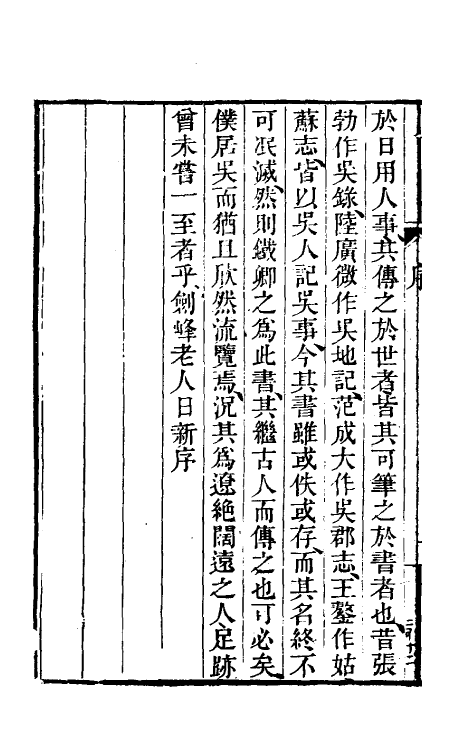 於日用人事其傳之於世者皆其可筆之於書者也昔張
勃作吳錄陸廣微作吳地記范成大作吳郡志王鏊作姑
蘇志皆以吳人記吳事今其書雖或佚或存而其名終不
可泯滅然則鐵卿之爲此書其繼古人而傳之也可必矣
僕居吳而猶且欣然流覽焉況其爲遼絶闊遠之人足跡
曾未嘗一至者乎劍峰老人日新序
序